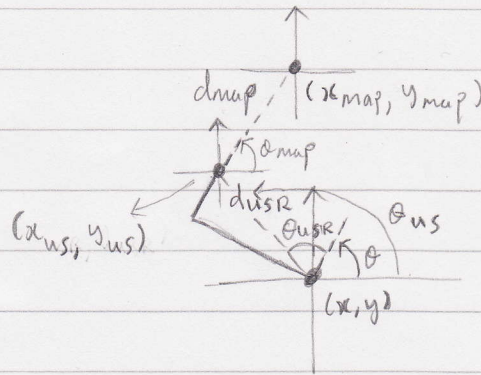 d_map (x_map, y_map)
θ_map
d_usR
(x_us, y_us) θ_usR θ θ_us
(x, y)